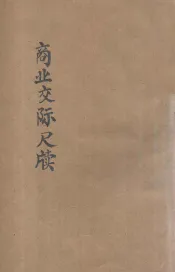 商业交际尺牍